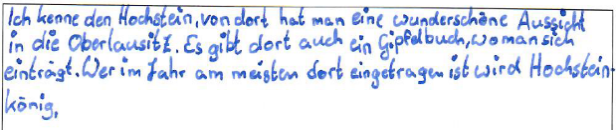 Ich kenne den Hochstein, von dort hat man eine wunderschöne Aussicht
in die Oberlausitz. Es gibt dort auch ein Gipfelbuch, wo man sich
einträgt. Wer im Jahr am meisten dort eingetragen ist wird Hochstein-
könig.